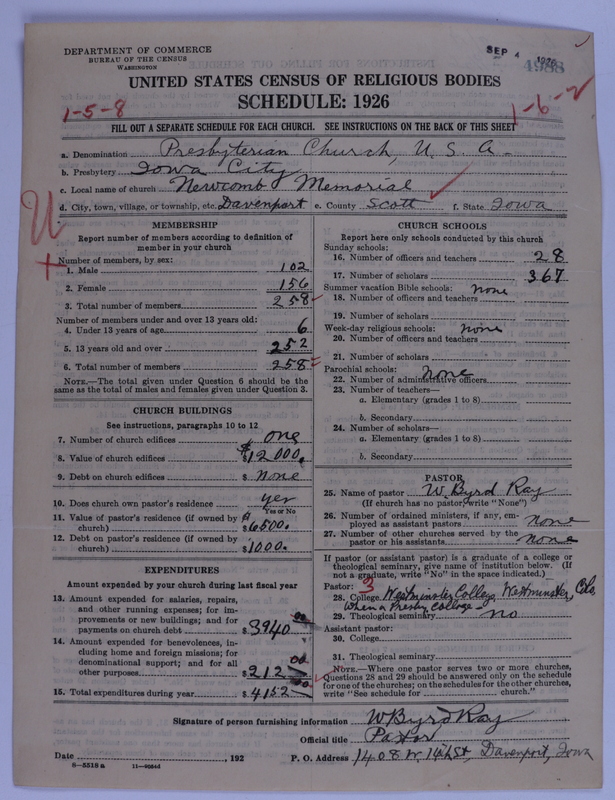 DEPARTMENT OF COMMERCE
BUREAU OF THE CENSUS
WASHINGTON
SEP 4 1926
4988
UNITED STATES CENSUS OF RELIGIOUS BODIES
SCHEDULE: 1926
1-5-8
1-6-2
FILL OUT A SEPARATE SCHEDULE FOR EACH CHURCH. SEE INSTRUCTIONS ON THE BACK OF THIS SHEET
a. Denomination Presbyterian Church, U. S. A.
b. Presbytery Iowa City
c. Local name of church Newcomb Memorial
d. City, town, village, or township, etc. Davenport e. County Scott f. State Iowa
U
MEMBERSHIP
Report number of members according to definition of
member in your church
Number of members, by sex:
1. Male 102
2. Female 156
3. Total number of members 258
Number of members under and over 13 years old:
4. Under 13 years of age 6
5. 13 years old and over 252
6. Total number of members 258
NOTE.—The total given under Question 6 should be the
same as the total of males and females given under Question 3.
CHURCH BUILDINGS
See instructions, paragraphs 10 to 12
7. Number of church edifices one
8. Value of church edifices $12000.
9. Debt on church edifices $ None
10. Does church own pastor's residence yes
Yes or No
11. Value of pastor's residence (if owned by
church) $6500.
12. Debt on pastor's residence (if owned by
church) $1000.
EXPENDITURES
Amount expended by your church during last fiscal year
13. Amount expended for salaries, repairs,
and other running expenses; for im-
provements or new buildings; and for
payments on church debt $3940 00
14. Amount expended for benevolences, in-
cluding home and foreign missions; for
denominational support; and for all
other purposes $212 00
15. Total expenditures during year $4152 00
CHURCH SCHOOLS
Report here only schools conducted by this church
Sunday schools:
16. Number of officers and teachers 28
17. Number of scholars 367
Summer vacation Bible schools: None
18. Number of officers and teachers
19. Number of scholars
Week-day religious schools: None
20. Number of officers and teachers
21. Number of scholars
Parochial schools: None
22. Number of administrative officers
23. Number of teachers—
a. Elementary (grades 1 to 8)
b. Secondary
24. Number of scholars—
a. Elementary (grades 1 to 8)
b. Secondary
PASTOR
25. Name of pastor W. Byrd Ray
(If church has no pastor, write "None")
26. Number of ordained ministers, if any, em-
ployed as assistant pastors None
27. Number of other churches served by the
pastor or his assistants None
If pastor (or assistant pastor) is a graduate of a college or
theological seminary, give name of institution below. (If
not a graduate, write "No" in the space indicated.)
Pastor: 3
28. College Westminster College, Westminster, Colo.
When a Presby. College
29. Theological seminary no
Assistant pastor:
30. College
31. Theological seminary
NOTE.—Where one pastor serves two or more churches,
Questions 28 and 29 should be answered only on the schedule
for one of the churches; on the schedules for the other churches,
write "See schedule for church."
Signature of person furnishing information W Byrd Ray
Official title Pastor
Date , 192 P. O. Address 1408 W. 14th St, Davenport, Iowa
8-5518 a